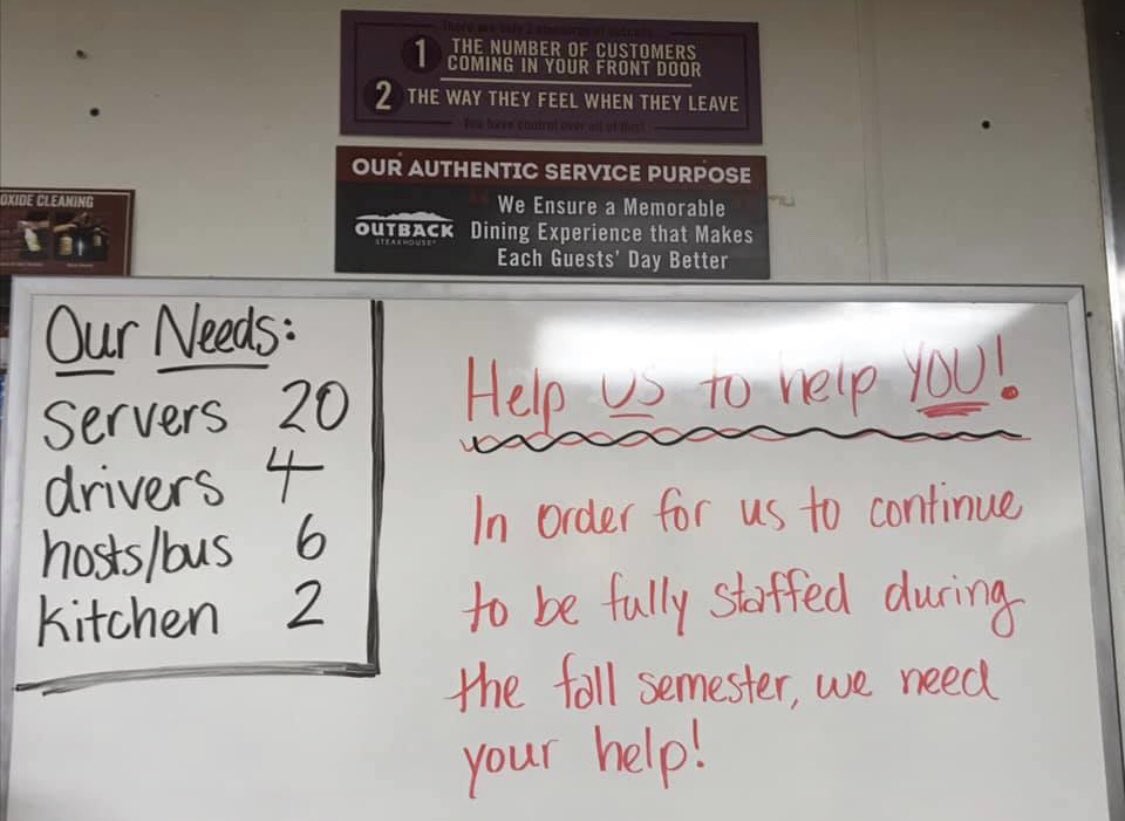 1 THE NUMBER OF CUSTOMERS
COMING IN YOUR FRONT DOOR
2 THE WAY THEY FEEL WHEN THEY LEAVE
You have control over all of this!
OUR AUTHENTIC SERVICE PURPOSE
OUTBACK
STEAKHOUSE
We Ensure a Memorable
Dining Experience that Makes
Each Guests' Day Better
OXIDE CLEANING
Our Needs:
servers 20
drivers 4
hosts/bus 6
kitchen 2
Help us to help YOU!
In order for us to continue
to be fully staffed during
the fall semester, we need
your help!